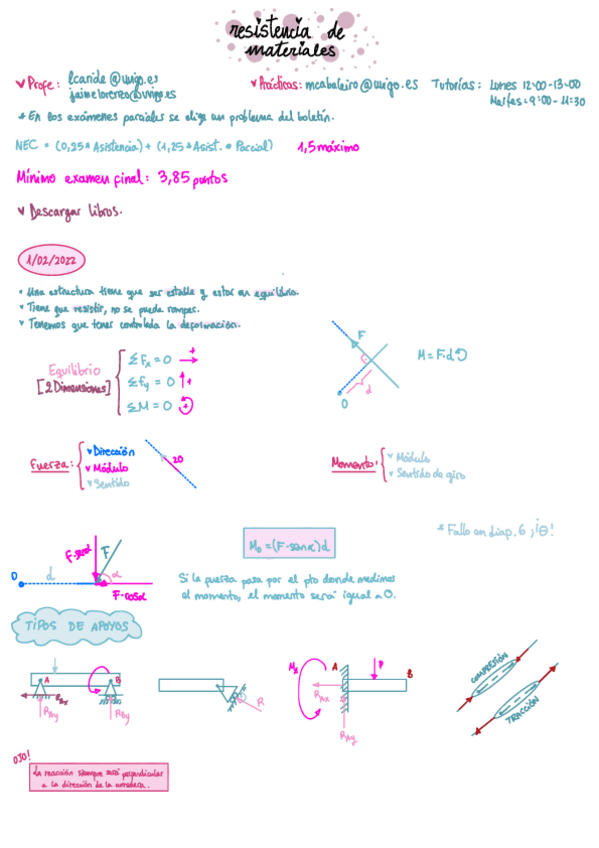 resistencia de
materiales
Profe: lcaride@uvigo.es
jaimelorenzo@uvigo.es
Prácticas: mcabaleiro@uvigo.es
Tutorías: Lunes 12:00-13:00
Martes: 9:00-11:30
* En los exámenes parciales se elige un problema del boletín.
NEC = (0,25 * Asistencia) + (1,25 * Asist. * Parcial) 1,5 máximo
Mínimo examen final: 3,85 puntos
Descargar libros.
1/02/2022
• Una estructura tiene que ser estable y estar en equilibrio.
• Tiene que resistir, no se puede romper.
Tenemos que tener controlada la deformación.
Equilibrio
[2 Dimensiones]
ΣFx = 0 +
ΣFy = 0 +
ΣM = 0 +
F
d
O
M = F·d
Fuerza:
Dirección
Módulo
Sentido
20
Momento:
Módulo
Sentido de giro
* Fallo en diap. 6 ¡θ!
F·senα
F
α
O
d
F·cosα
Mo = (F·senα)d
Si la fuerza pasa por el pto donde medimos
el momento, el momento será igual a 0.
TIPOS DE APOYOS
A
B
RBx
RAy
RBy
R
MA
A
P
B
RAx
RAy
COMPRESIÓN
TRACCIÓN
OJO!
La reacción siempre será perpendicular
a la dirección de la corredera.